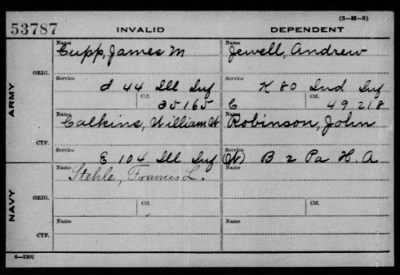 (3—H—5)
53787 INVALID DEPENDENT
Name Name
Cupp, James M Jewell, Andrew
ORIG. Service Service
A 44 Ill Inf K 80 Ind Inf
Ctf. Ctf.
35165 C 49,218
ARMY
Name Name
Calkins, William W Robinson, John
CTF. Service Service
E 104 Ill Inf B 2 Pa H. A
Name Name
Stehle, Francis L.
ORIG. Service Service
Ctf. Ctf.
NAVY
Name Name
CTF. Service Service